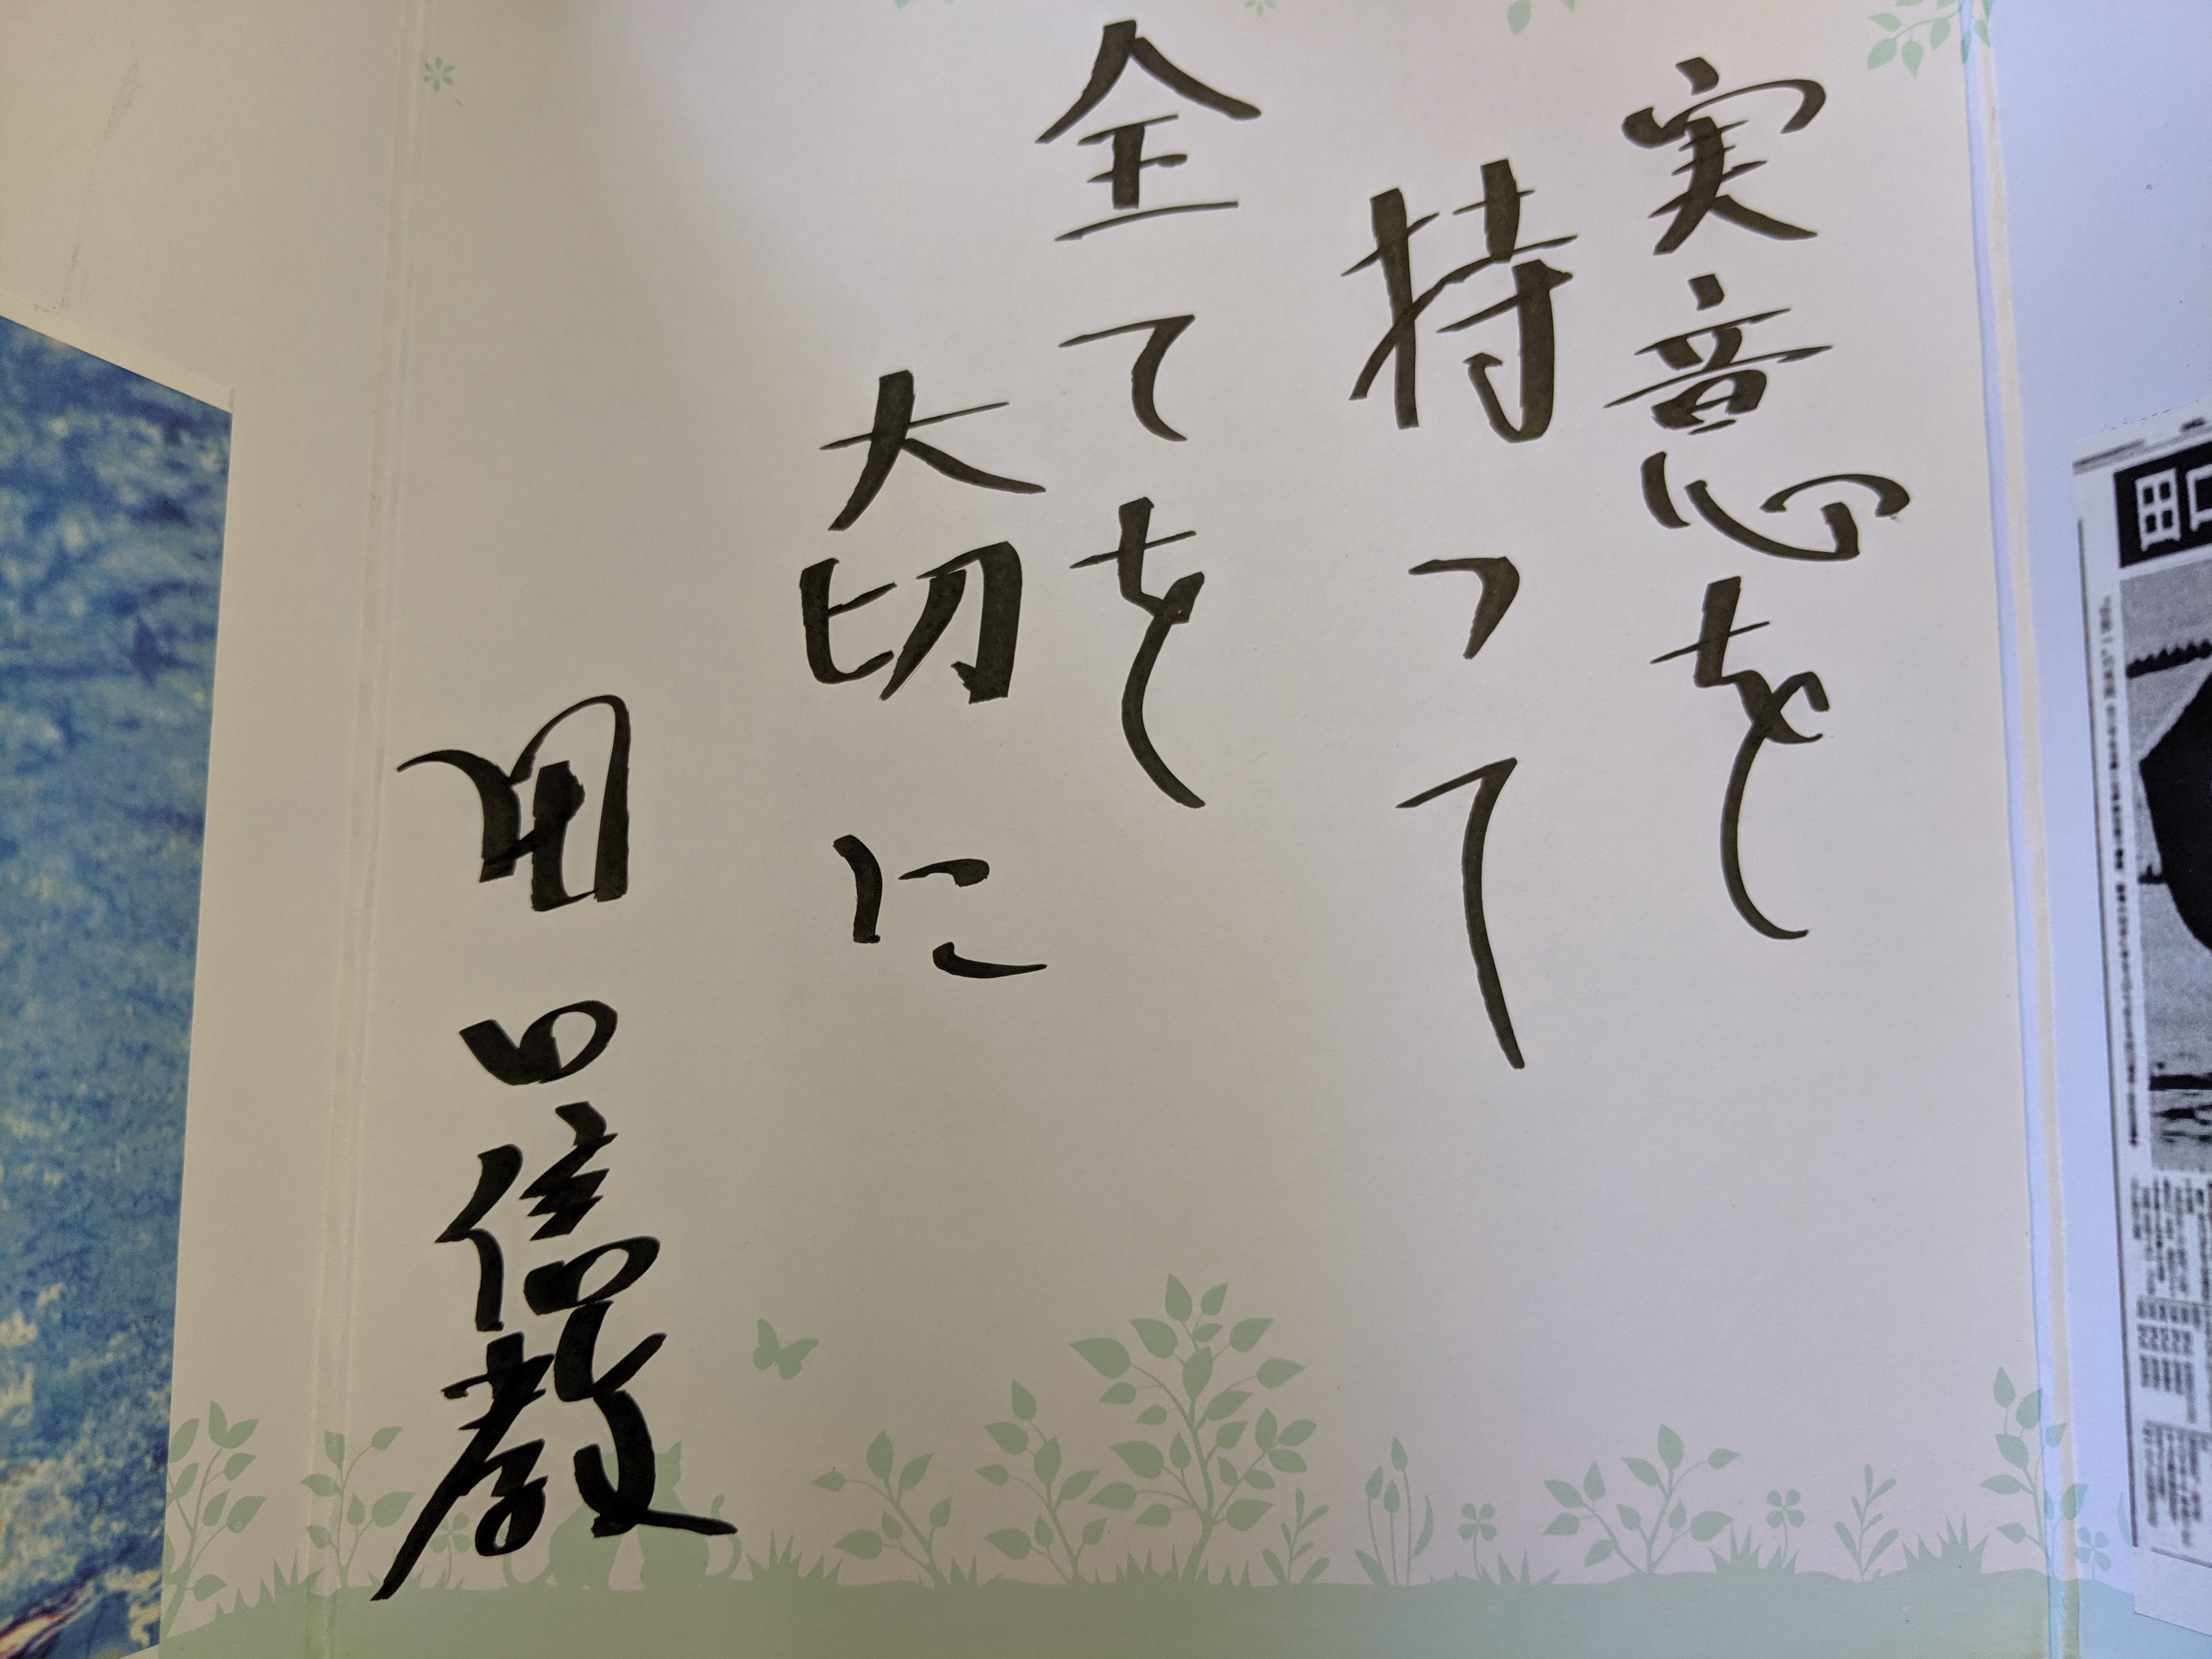 実意を
持って
全てを
大切に
田口信教
田口